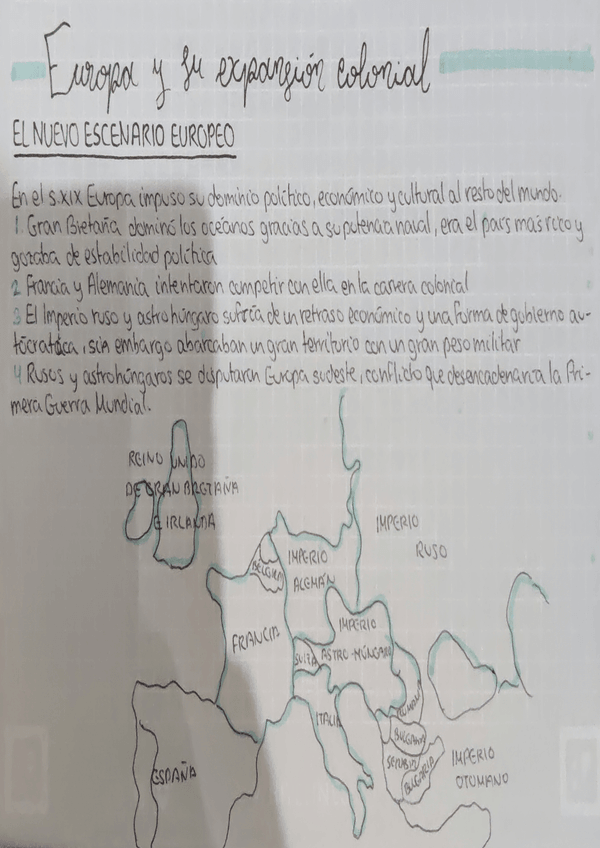 Europa y su expansión colonial
EL NUEVO ESCENARIO EUROPEO
En el s.XIX Europa impuso su dominio político, económico y cultural al resto del mundo.
1. Gran Bretaña dominó los océanos gracias a su potencia naval, era el país mas rico y
gozaba de estabilidad política
2 Francia y Alemania intentaron competir con ella en la carrera colonial
3 El Imperio ruso y astrohúngaro sufría de un retraso económico y una forma de gobierno au-
tocratática, sin embargo abarcaban un gran territorio con un gran peso militar
4 Rusos y astrohúngaros se disputaron Europa sudeste, conflicto que desencadenaría la Pri-
mera Guerra Mundial.
REINO UNIDO
DE GRAN BRETAÑA
E IRLANDA
IMPERIO
RUSO
IMPERIO
ALEMÁN
BELGICA
FRANCIA
IMPERIO
ASTRO-HÚNGARO
SUIZA
ITALIA
BULGARIA
SERBIA
BULGARIA
IMPERIO
OTOMANO
ESPAÑA